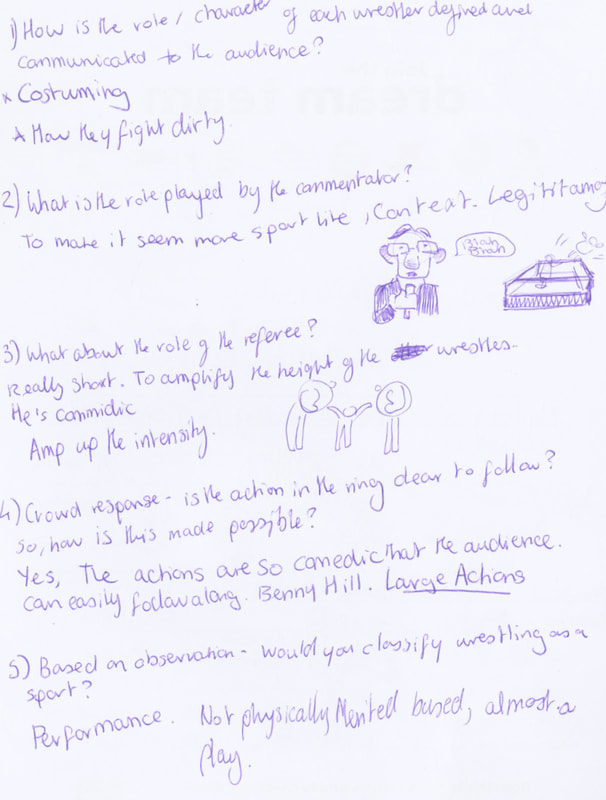 1) How is the role / character of each wrestler defined and
communicated to the audience?
* Costuming
* How they fight dirty.
2) What is the role played by the commentator?
To make it seem more sport like, Context. Legititamacy
Blah
Blah
3) What about the role of the referee?
Really short. To amplify the height of the wrestles.
He's commidic
Amp up the intensity.
4) Crowd response - is the action in the ring clear to follow?
So, how is this made possible?
Yes, The actions are so comedic that the audience.
can easily follow along. Benny Hill. Large Actions
5) Based on observation - would you classify wrestling as a
sport?
Performance. Not physically Merited based, almost a
play.